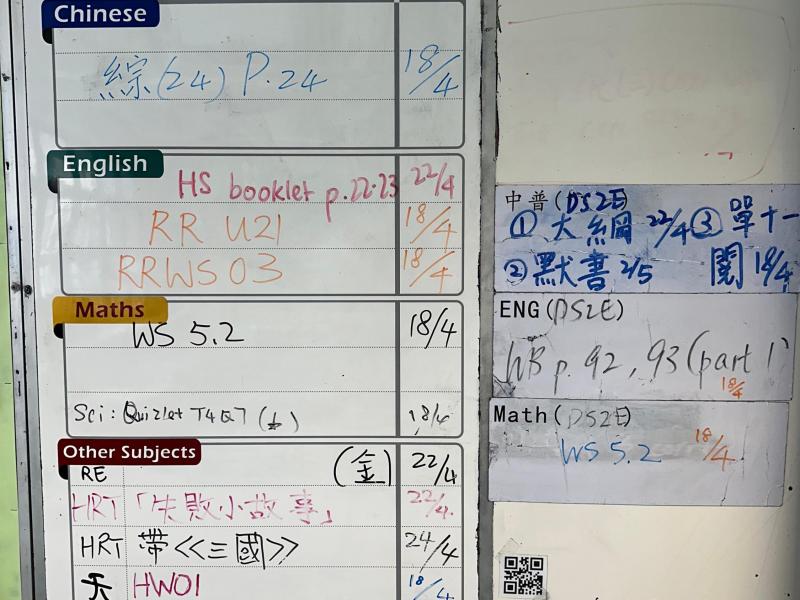 Chinese
綜(24) P.24 18/4
English
HS booklet p.22-23 22/4
RR U21 18/4
RRWS 03 18/4
Maths
WS 5.2 18/4
Sci: Quizlet T4Q7 18/4
Other Subjects
RE (金) 22/4
HRT「失敗小故事」 22/4
HRT 帶<<三國>> 24/4
HW01 18/4
中普(DS2E)
① 大綱 22/4 ③ 單十一
② 默書 2/5 閱 18/4
ENG(DS2E)
WB p. 92, 93(part 1)
18/4
Math(DS2E)
WS 5.2 18/4